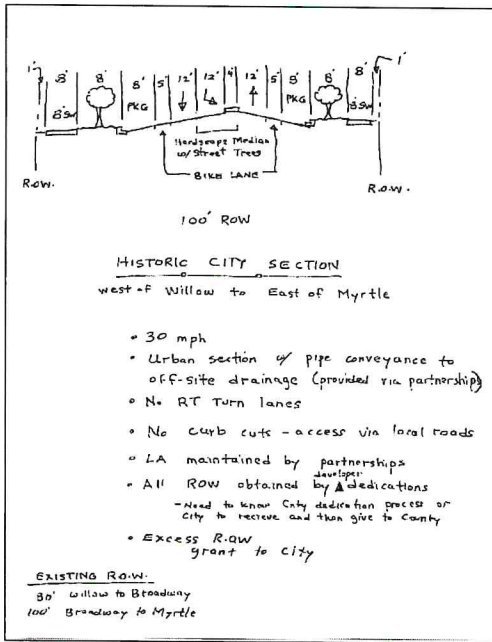 1' 8' 8' 8' 5' 12' 12' 4' 12' 5' 8' 8' 8' 1'
PKG PKG
8'SW 8'SW
Hardscape Median
w/Street Trees
BIKE LANE
R.O.W. R.O.W.
100' ROW
HISTORIC CITY SECTION
west of Willow to East of Myrtle
• 30 mph
• Urban section w/ pipe conveyance to
off-site drainage (provided via partnership)
• No RT Turn lanes
• No curb cuts - access via local roads
• LA maintained by partnerships
developer
• All ROW obtained by dedications
- Need to know Cnty dedication process or
City to recieve and then give to County
• Excess R.O.W
grant to City
EXISTING R.O.W.
80' Willow to Broadway
100' Broadway to Myrtle